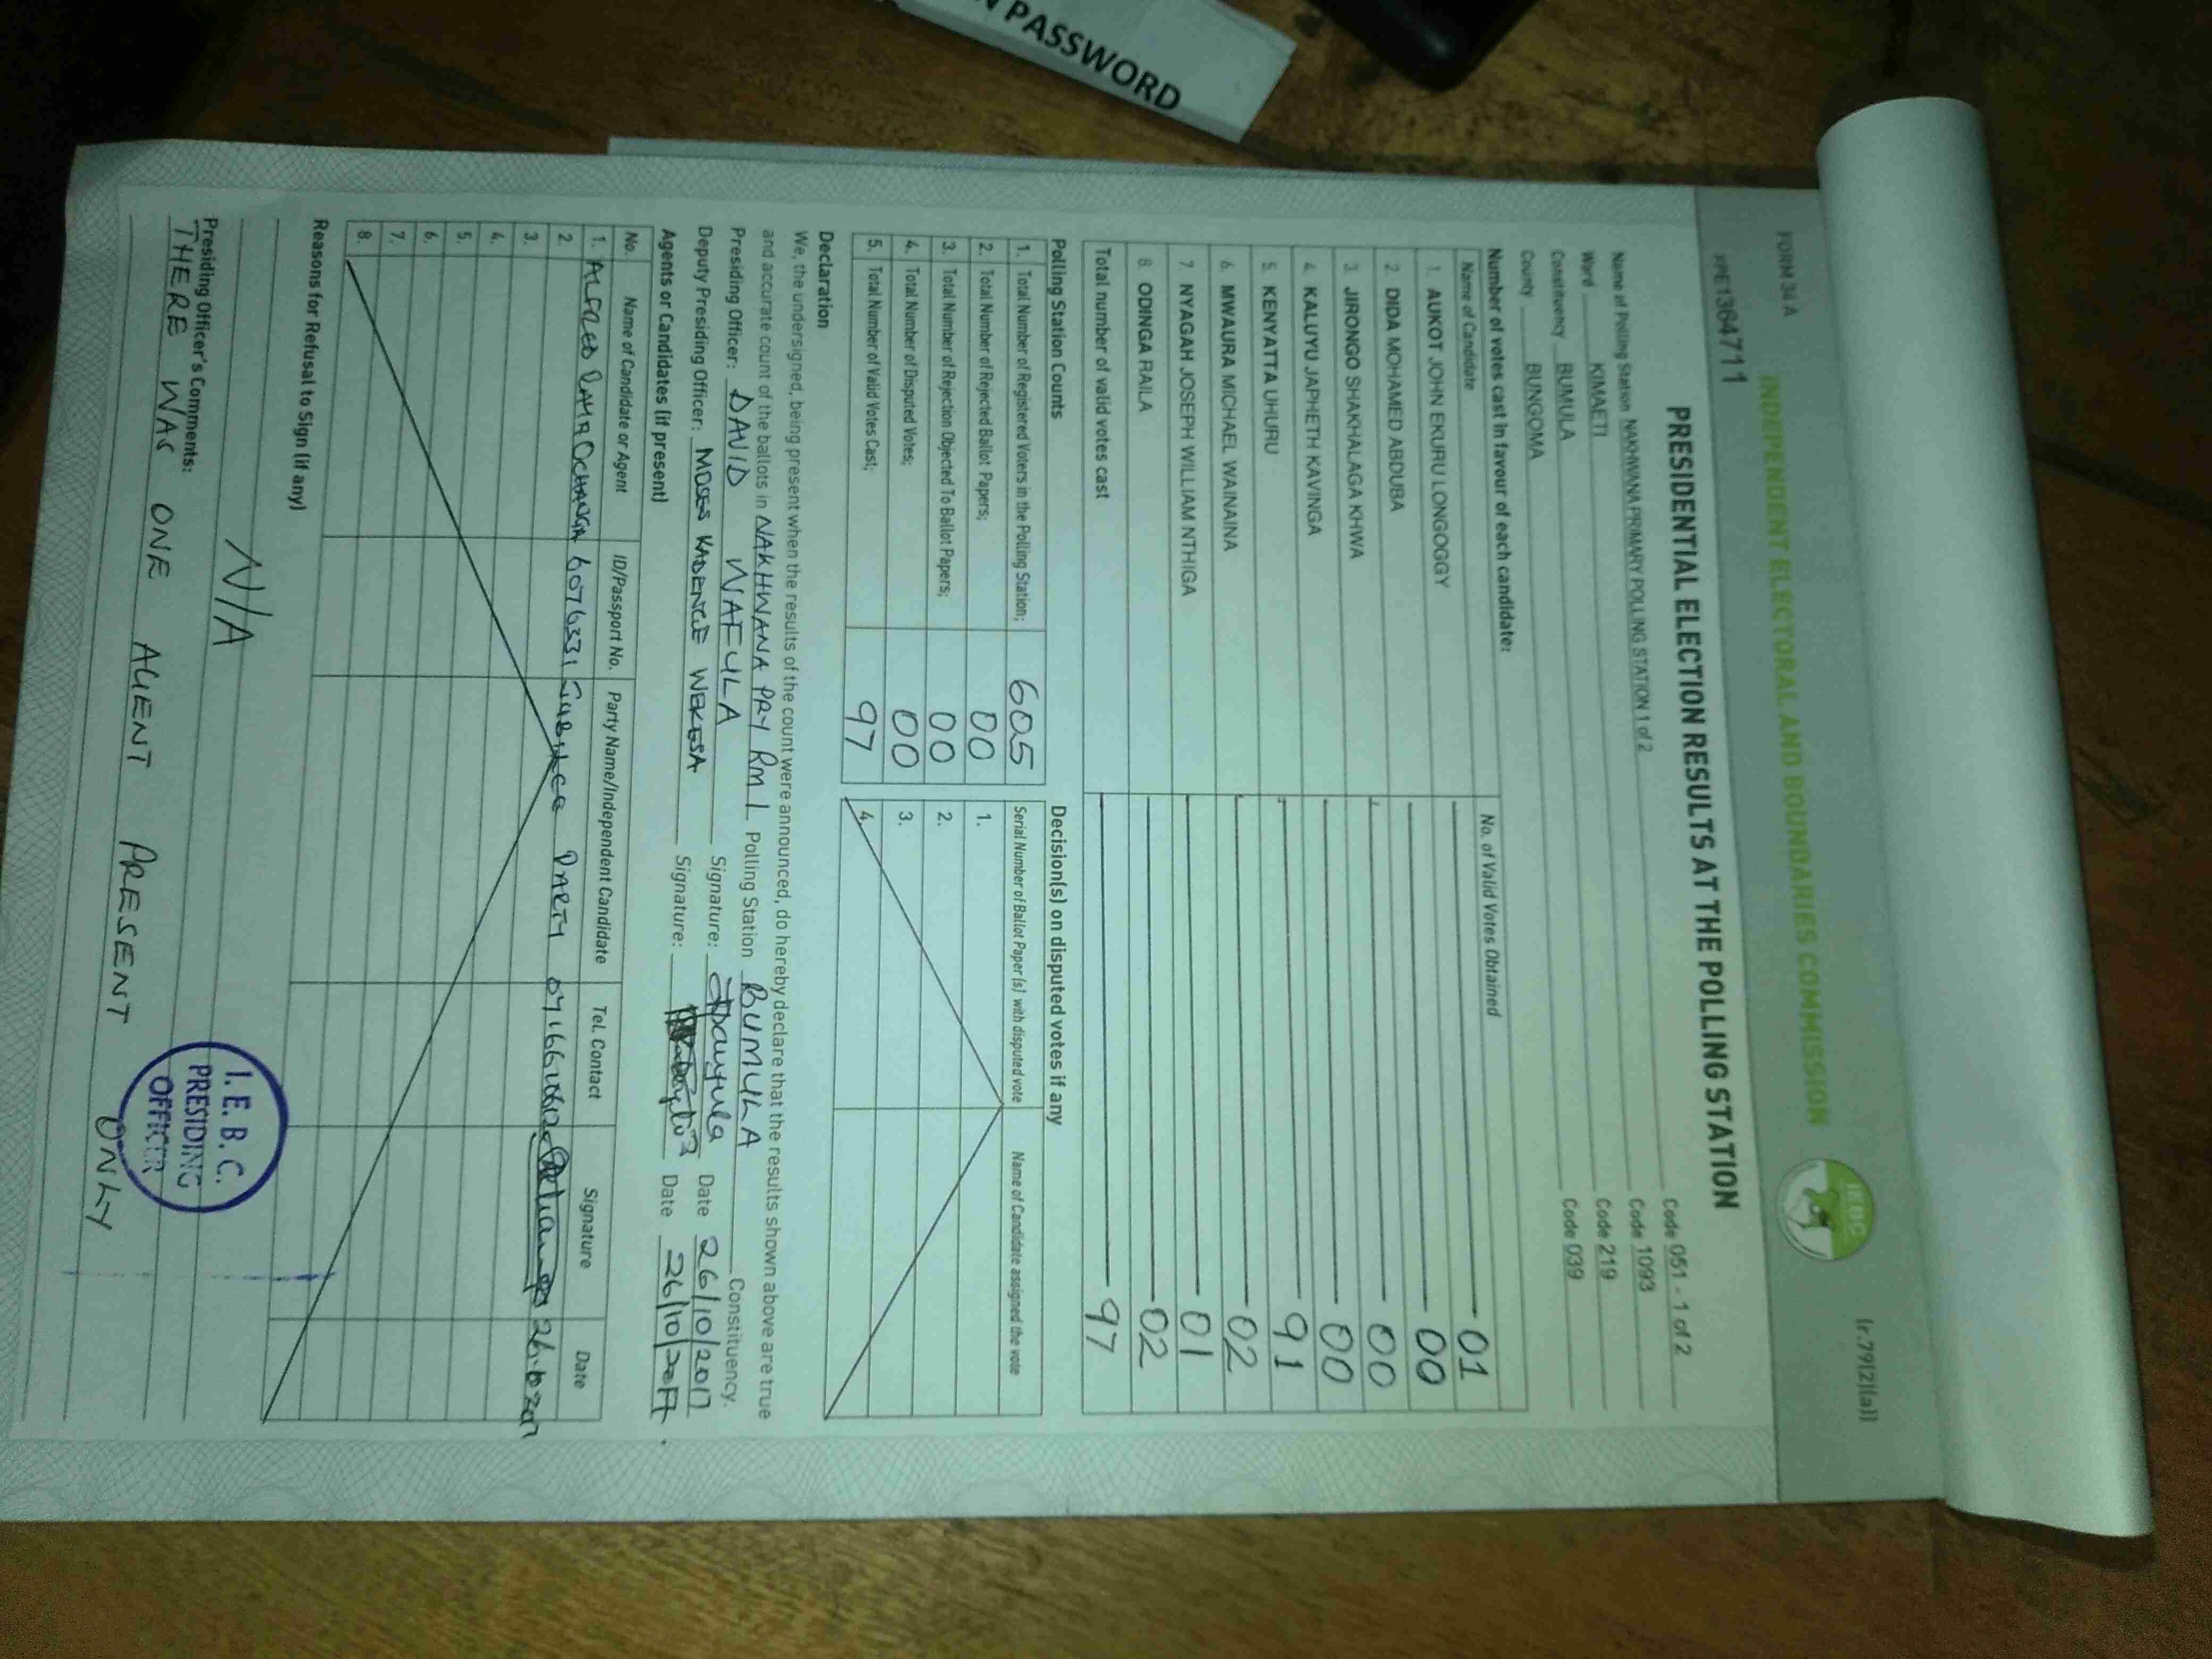 N PASSWORD
FORM 34A
(r.79(2)(a))
INDEPENDENT ELECTORAL AND BOUNDARIES COMMISSION
IEBC
PE1364711
PRESIDENTIAL ELECTION RESULTS AT THE POLLING STATION
Name of Polling Station NAKHWANA PRIMARY POLLING STATION 1 of 2 Code 051 - 1 of 2
Ward KIMAETI Code 1093
Constituency BUMULA Code 219
County BUNGOMA Code 039
Number of votes cast in favour of each candidate:
Name of Candidate No. of Valid Votes Obtained
1. AUKOT JOHN EKURU LONGOGGY 01
2. DIDA MOHAMED ABDUBA 00
3. JIRONGO SHAKHALAGA KHWA 00
4. KALUYU JAPHETH KAVINGA 00
5. KENYATTA UHURU 91
6. MWAURA MICHAEL WAINAINA 02
7. NYAGAH JOSEPH WILLIAM NTHIGA 01
8. ODINGA RAILA 02
Total number of valid votes cast 97
Polling Station Counts
1. Total Number of Registered Voters in the Polling Station; 605
2. Total Number of Rejected Ballot Papers; 00
3. Total Number of Rejection Objected To Ballot Papers; 00
4. Total Number of Disputed Votes; 00
5. Total Number of Valid Votes Cast; 97
Decision(s) on disputed votes if any
Serial Number of Ballot Paper (s) with disputed vote Name of Candidate assigned the vote
1.
2.
3.
4.
Declaration
We, the undersigned, being present when the results of the count were announced, do hereby declare that the results shown above are true
and accurate count of the ballots in NAKHWANA PRY RM 1 Polling Station BUMULA Constituency.
Presiding Officer: DAVID WAFULA Signature: Date 26/10/2017
Deputy Presiding Officer: MOSES KADENGE WEKESA Signature: Date 26/10/2017
Agents or Candidates (if present)
No. Name of Candidate or Agent ID/Passport No. Party Name/Independent Candidate Tel. Contact Signature Date
1. ALFRED OCHANGA 6076331 JUBILEE PARTY
2.
3.
4.
5.
6.
7.
8.
Reasons for Refusal to Sign (if any)
N/A
Presiding Officer's Comments:
THERE WAS ONE AGENT PRESENT ONLY
I. E. B. C.
PRESIDING
OFFICER